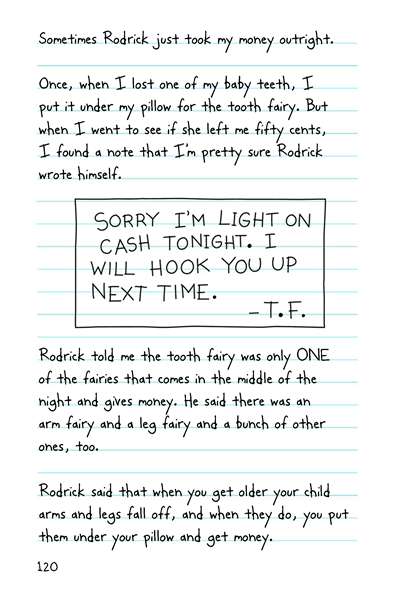 Sometimes Rodrick just took my money outright.
Once, when I lost one of my baby teeth, I
put it under my pillow for the tooth fairy. But
when I went to see if she left me fifty cents,
I found a note that I'm pretty sure Rodrick
wrote himself.
SORRY I'M LIGHT ON
CASH TONIGHT. I
WILL HOOK YOU UP
NEXT TIME.
-T.F.
Rodrick told me the tooth fairy was only ONE
of the fairies that comes in the middle of the
night and gives money. He said there was an
arm fairy and a leg fairy and a bunch of other
ones, too.
Rodrick said that when you get older your child
arms and legs fall off, and when they do, you put
them under your pillow and get money.
120